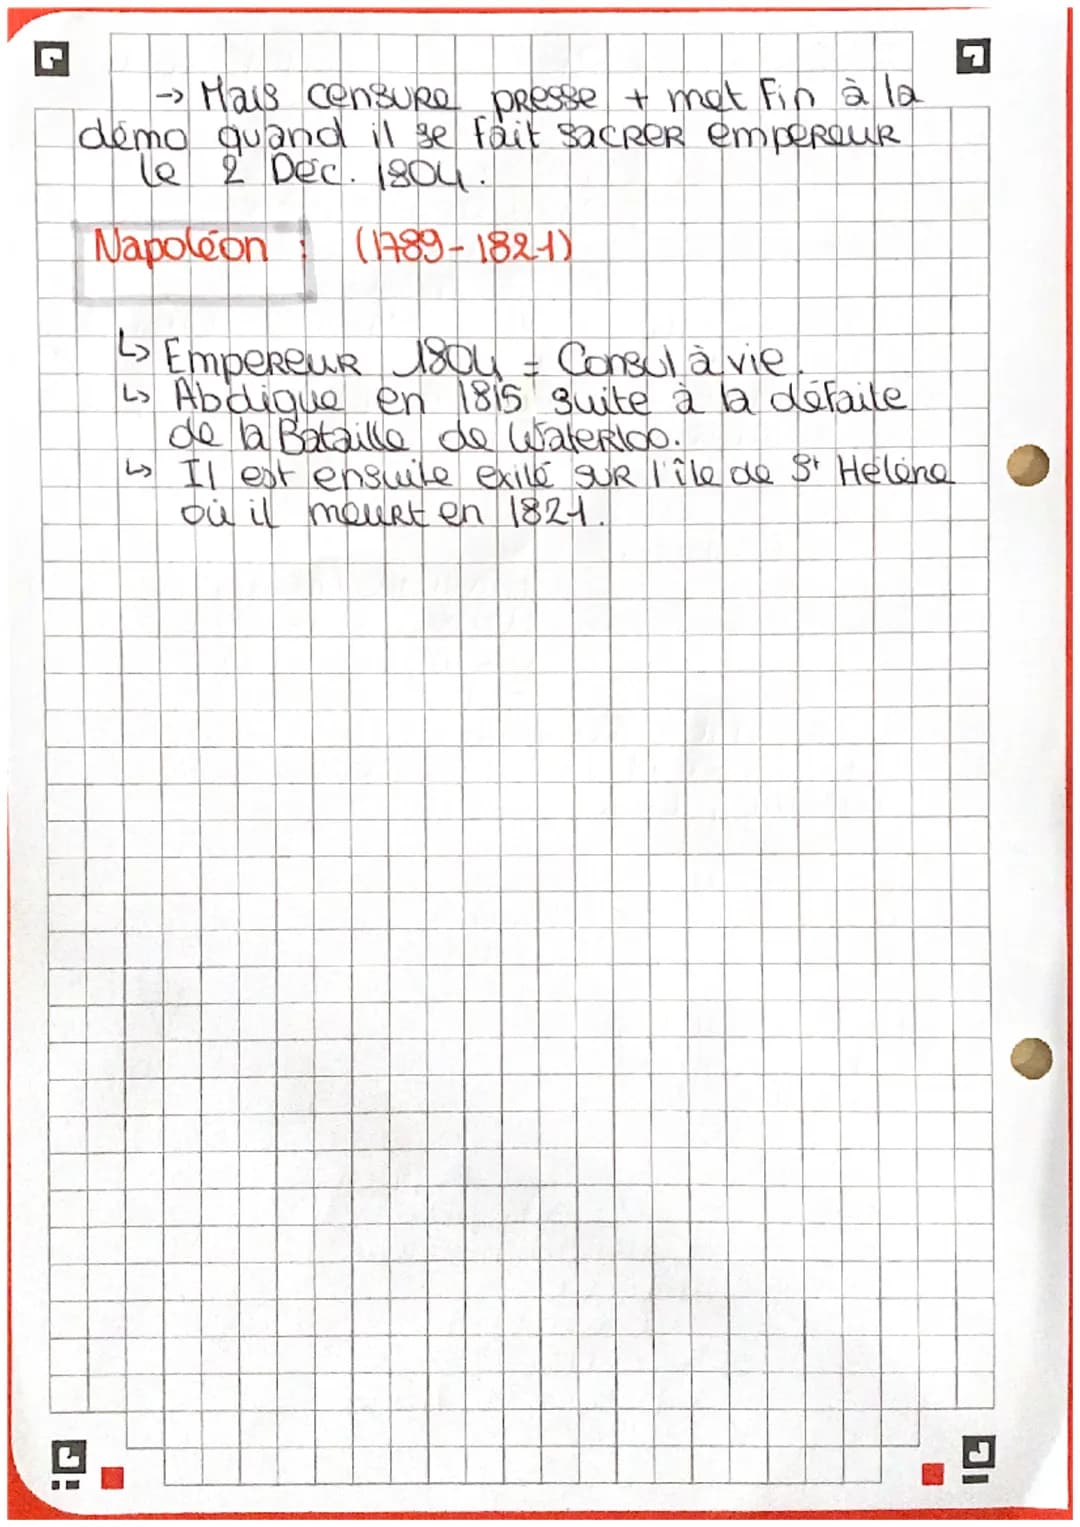 → Mais censure presse + met fin à la
démo quand il se fait sacrer empereur
le 2 Déc. 1804.
Napoléon : (1789-1821)
↳ Empereur 1804 = Consul à vie.
↳ Abdique en 1815 suite à la défaite
de la Bataille de Waterloo.
↳ Il est ensuite exilé sur l'île de St Hélène
où il meurt en 1821.